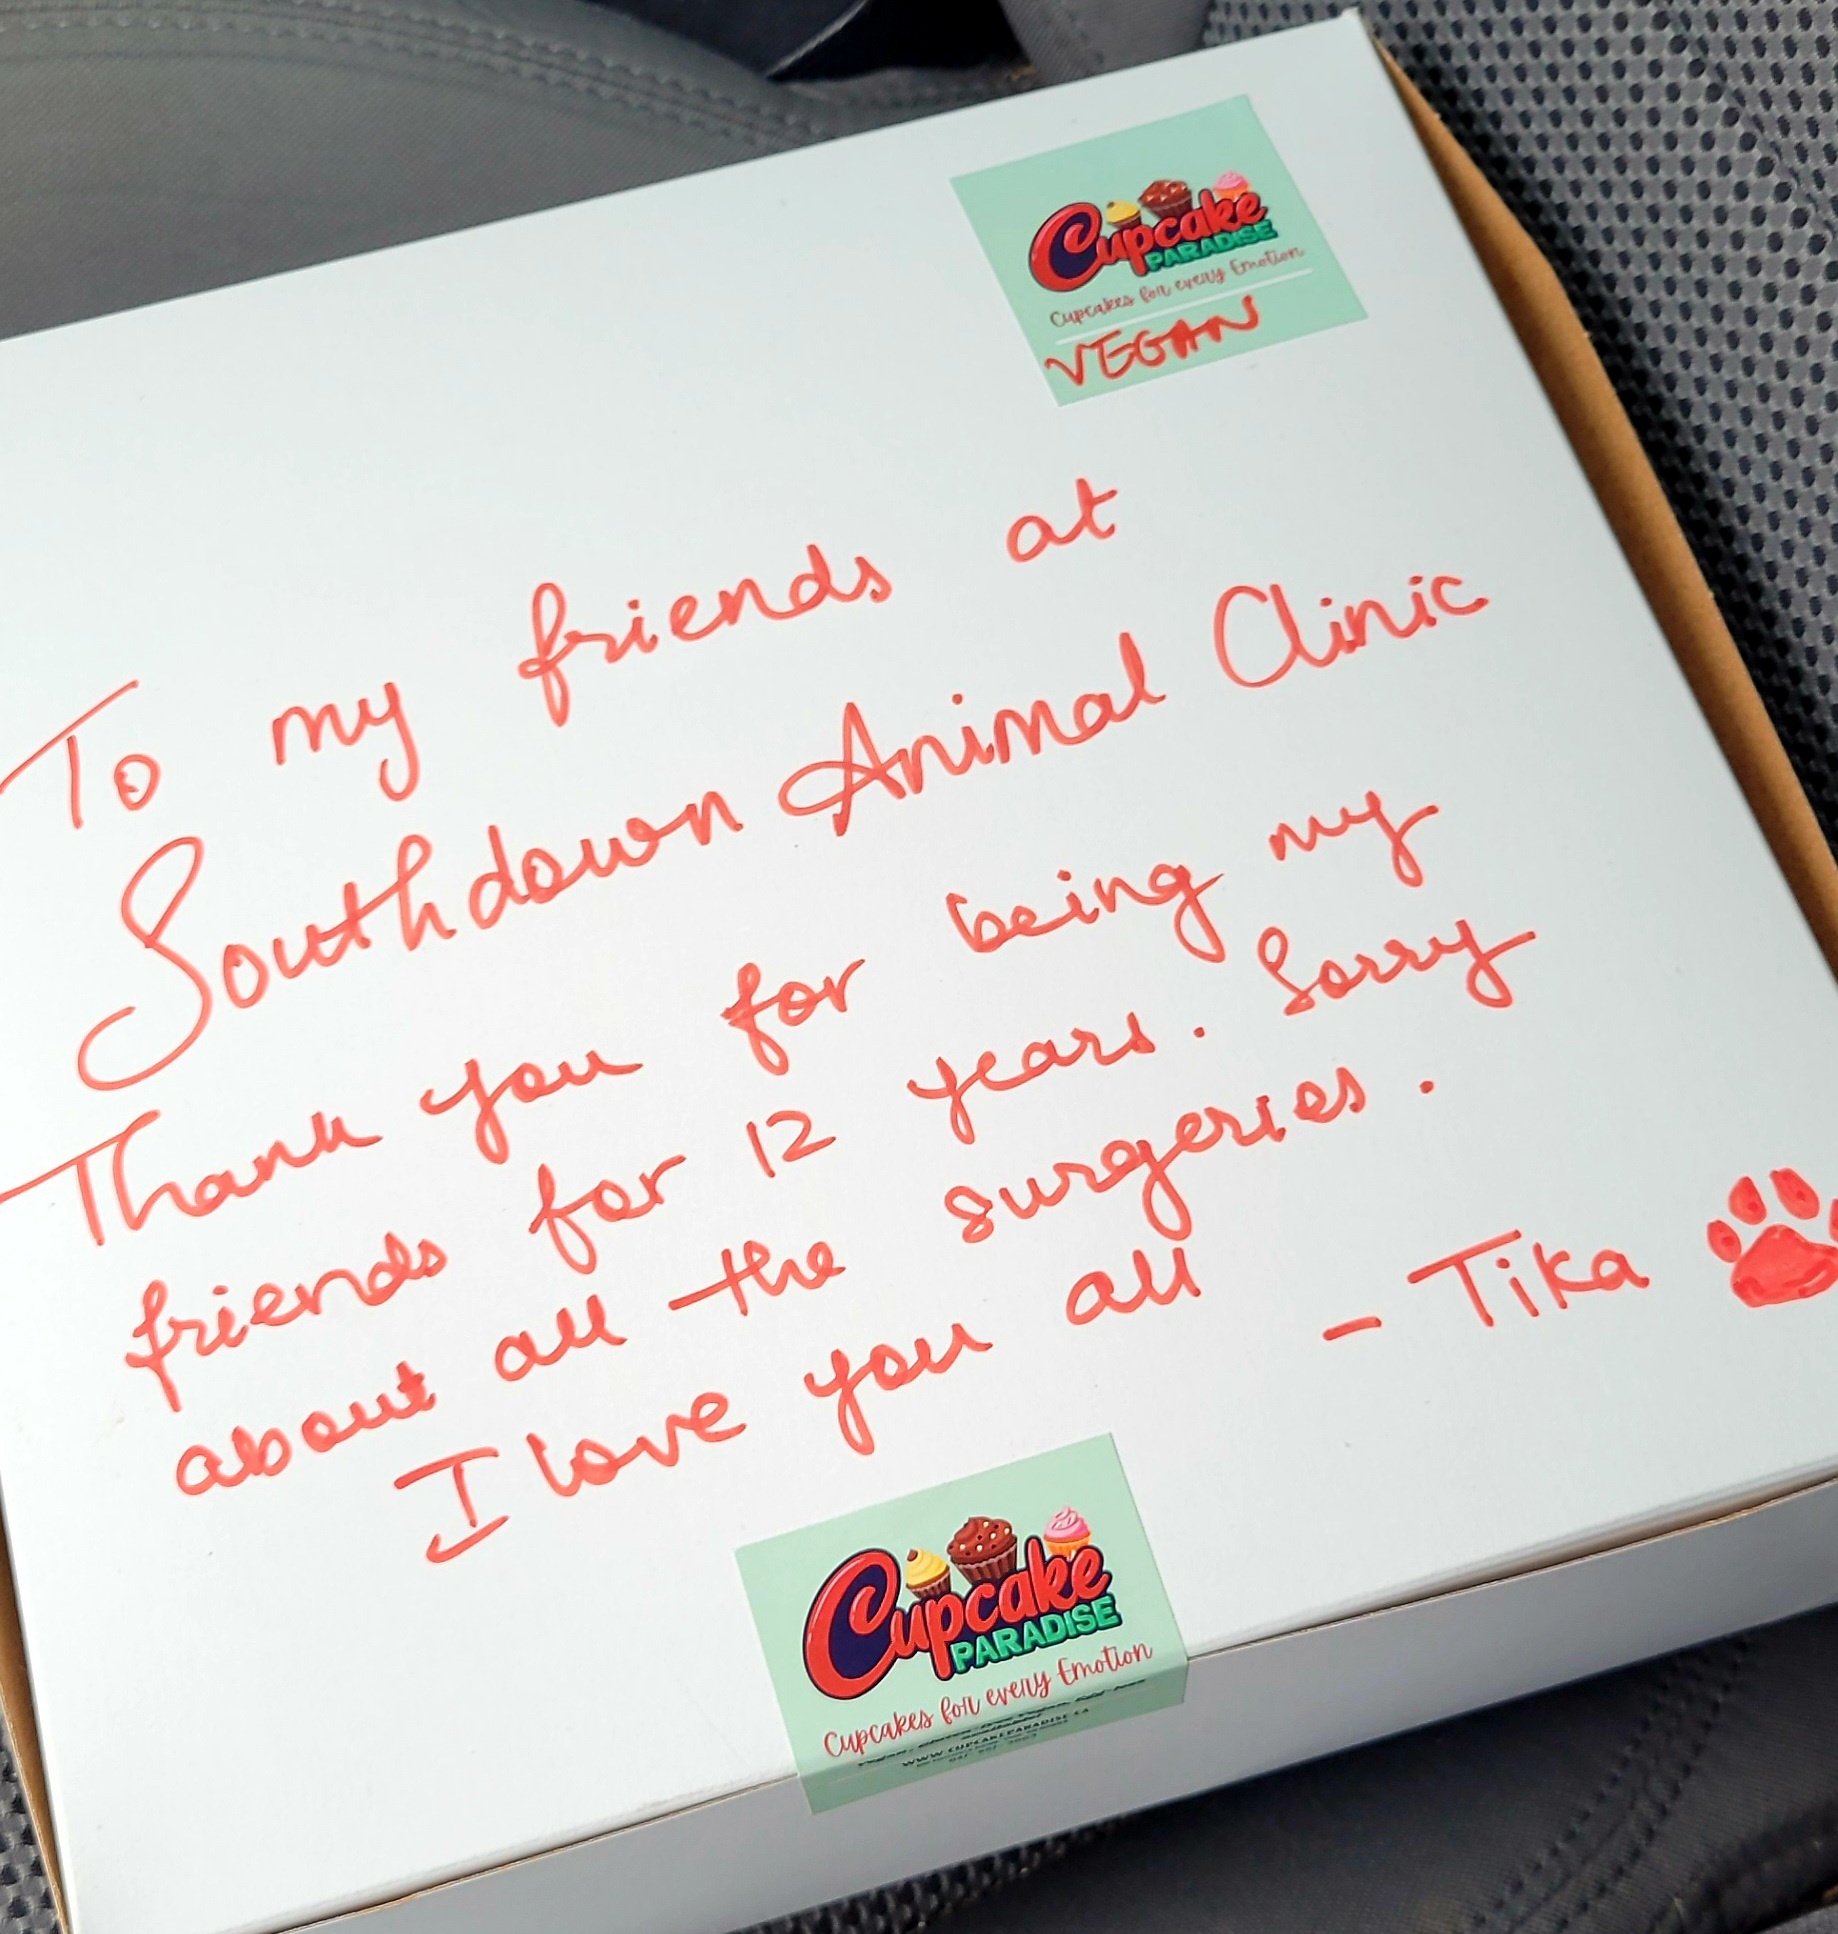 Cupcake
PARADISE
Cupcakes for every Emotion
VEGAN
To my friends at
Southdown Animal Clinic
Thank you for being my
friends for 12 years. Sorry
about all the surgeries.
I love you all - Tika
Cupcake
PARADISE
Cupcakes for every Emotion
WWW.CUPCAKEPARADISE.CA